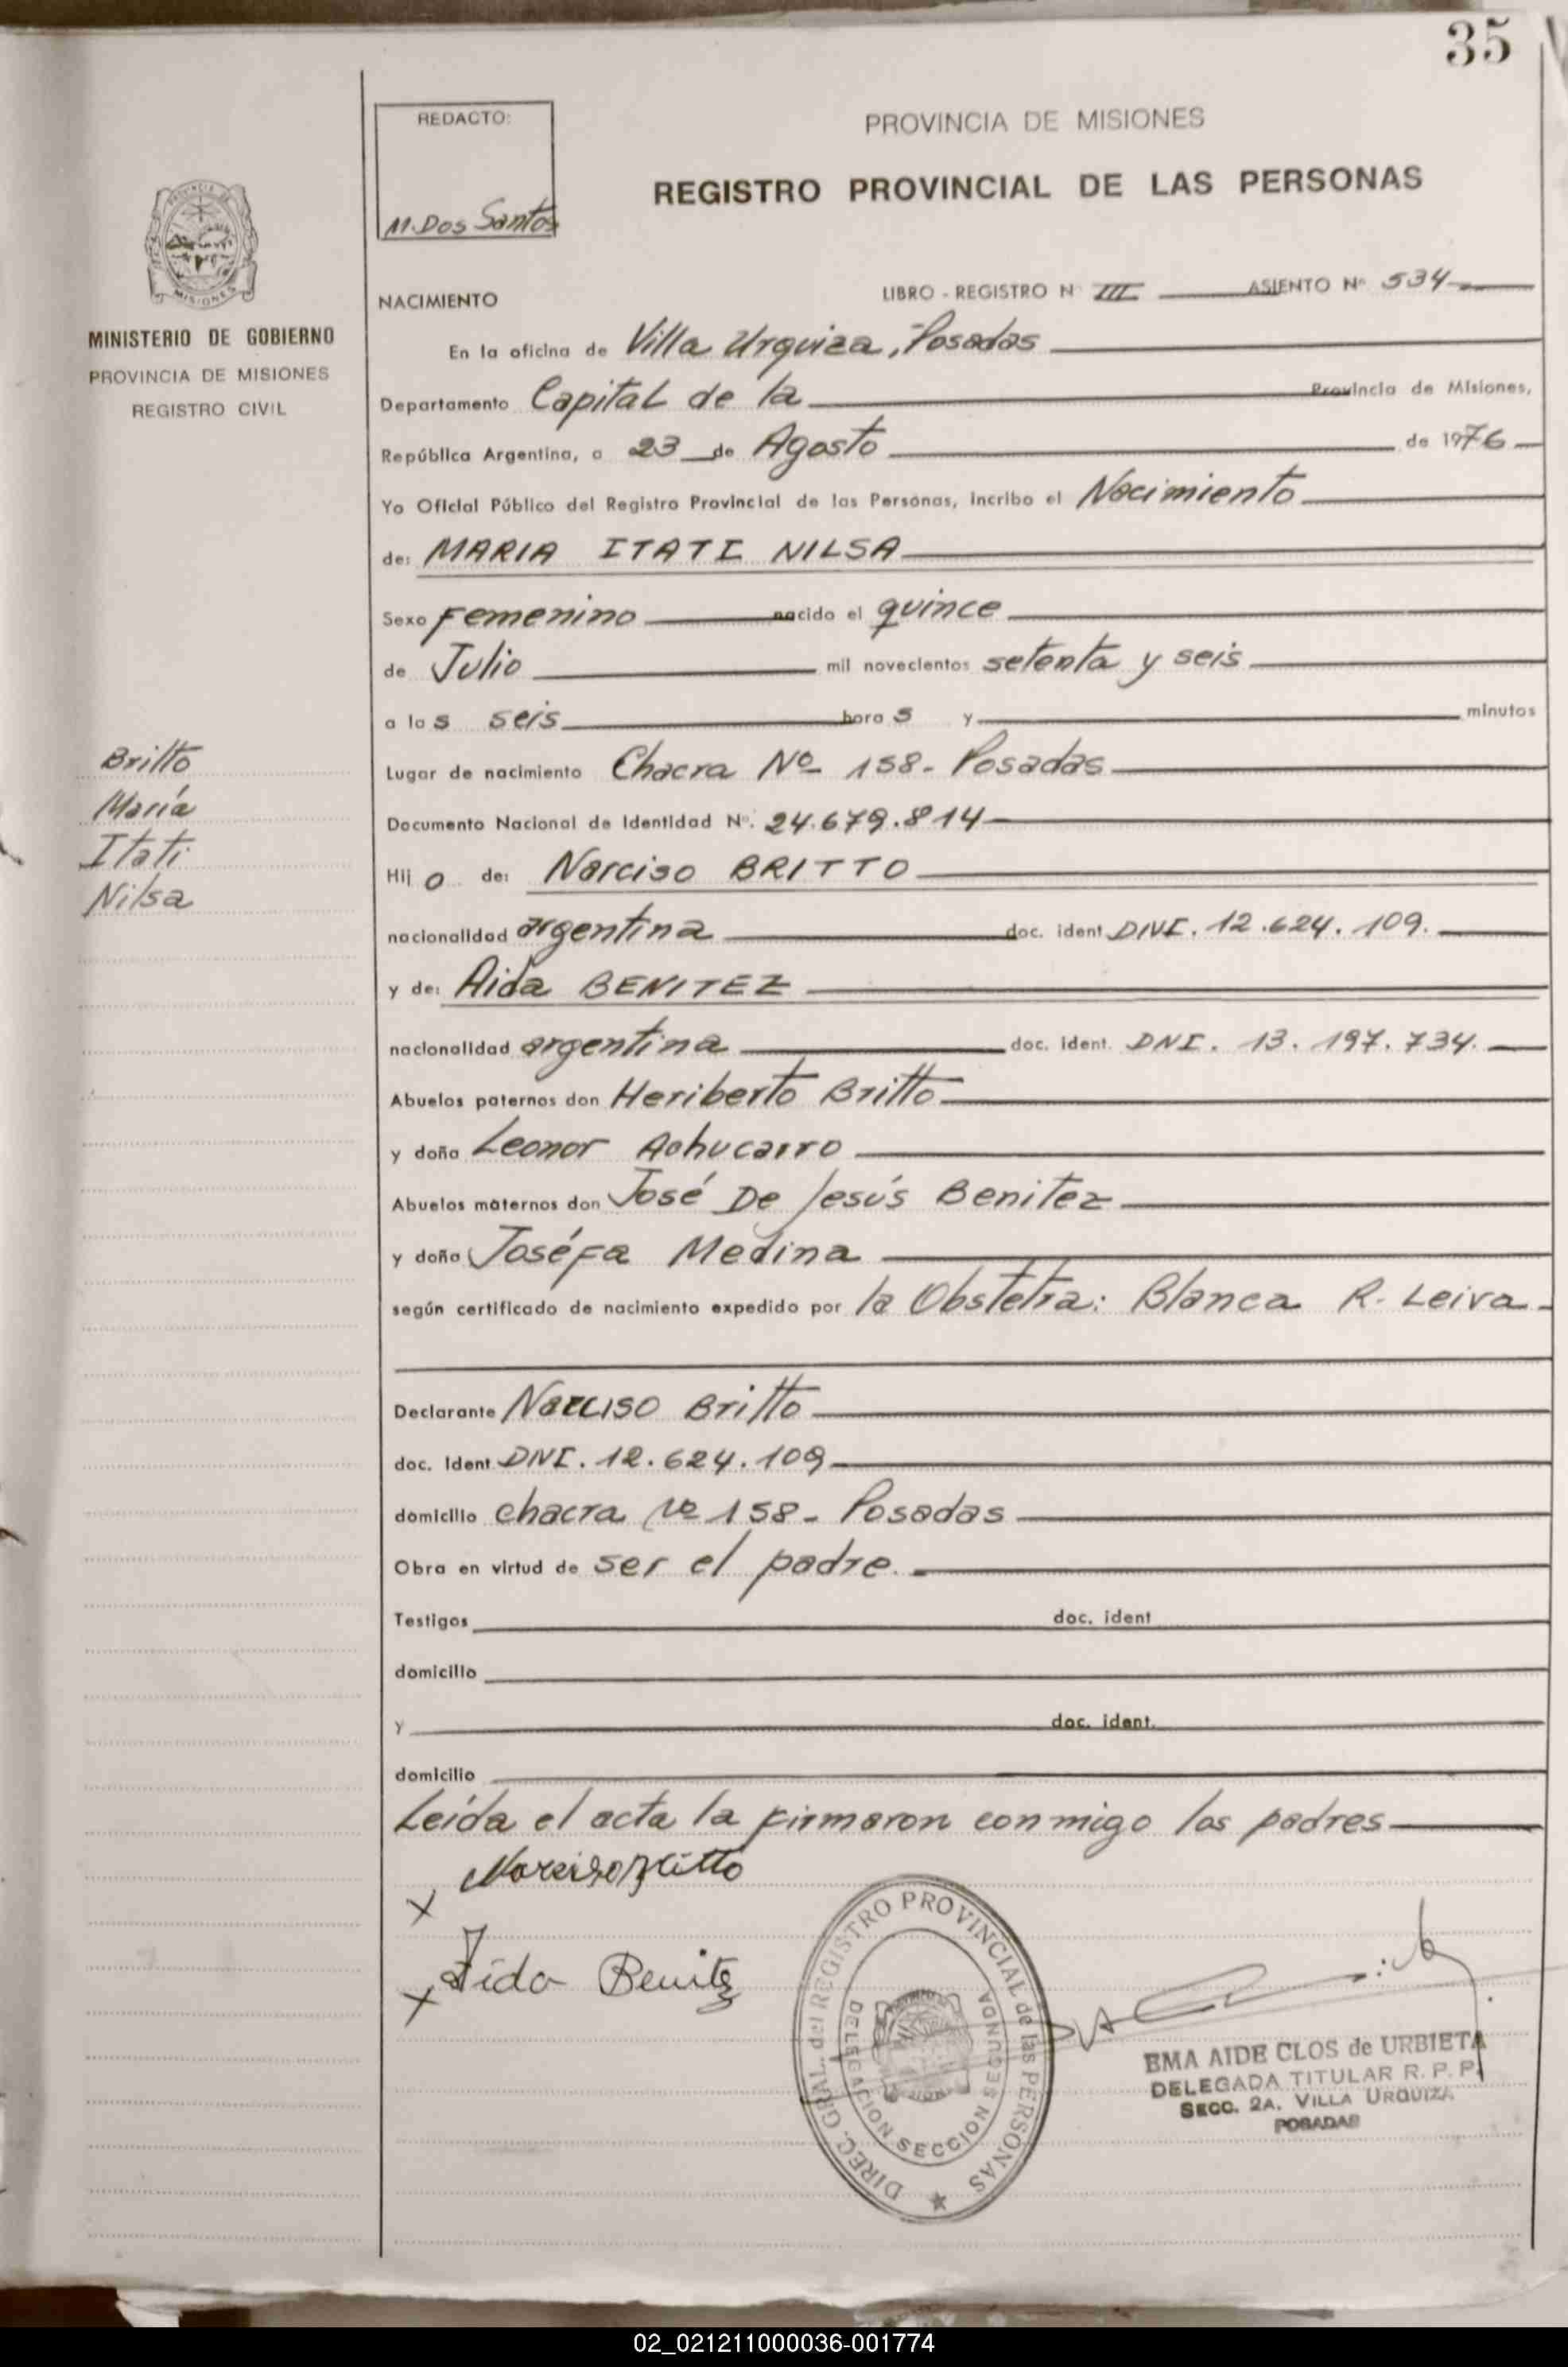 35
REDACTO:
M. Dos Santos
PROVINCIA DE MISIONES
REGISTRO PROVINCIAL DE LAS PERSONAS
MINISTERIO DE GOBIERNO
PROVINCIA DE MISIONES
REGISTRO CIVIL
NACIMIENTO
LIBRO - REGISTRO N III ASIENTO Nº 534
En la oficina de Villa Urquiza, Posadas
Departamento Capital de la Provincia de Misiones,
República Argentina, a 23 de Agosto de 1976
Yo Oficial Público del Registro Provincial de las Personas, incribo el Nacimiento
de: MARIA ITATI NILSA
Sexo Femenino nacido el quince
de Julio mil novecientos setenta y seis
a las seis horas y minutos
Britto
María
Itati
Nilsa
Lugar de nacimiento Chacra Nº 158- Posadas
Documento Nacional de Identidad Nº. 24.679.814
Hijo de: Narciso BRITTO
nacionalidad argentina doc. ident. DNI. 12.624.109.
y de: Aida BENITEZ
nacionalidad argentina doc. ident. DNI. 13.197.734.
Abuelos paternos don Heriberto Britto
y doña Leonor Achucarro
Abuelos maternos don José De Jesús Benitez
y doña Joséfa Medina
según certificado de nacimiento expedido por la Obstetra: Blanca R. Leiva-
Declarante Narciso Britto
doc. Ident. DNI. 12.624.109
domicilio chacra Nº 158- Posadas
Obra en virtud de ser el padre.-
Testigos doc. ident
domicilio
y doc. ident.
domicilio
Leída el acta la firmaron conmigo los padres
Narciso Britto
X
Aida Benitez
X
DIREC. GRAL. del REGISTRO PROVINCIAL de las PERSONAS
DELEGACION SECCION SEGUNDA
EMA AIDE CLOS de URBIETA
DELEGADA TITULAR R. P. P.
SECC. 2A. VILLA URQUIZA
POSADAS
02_021211000036-001774